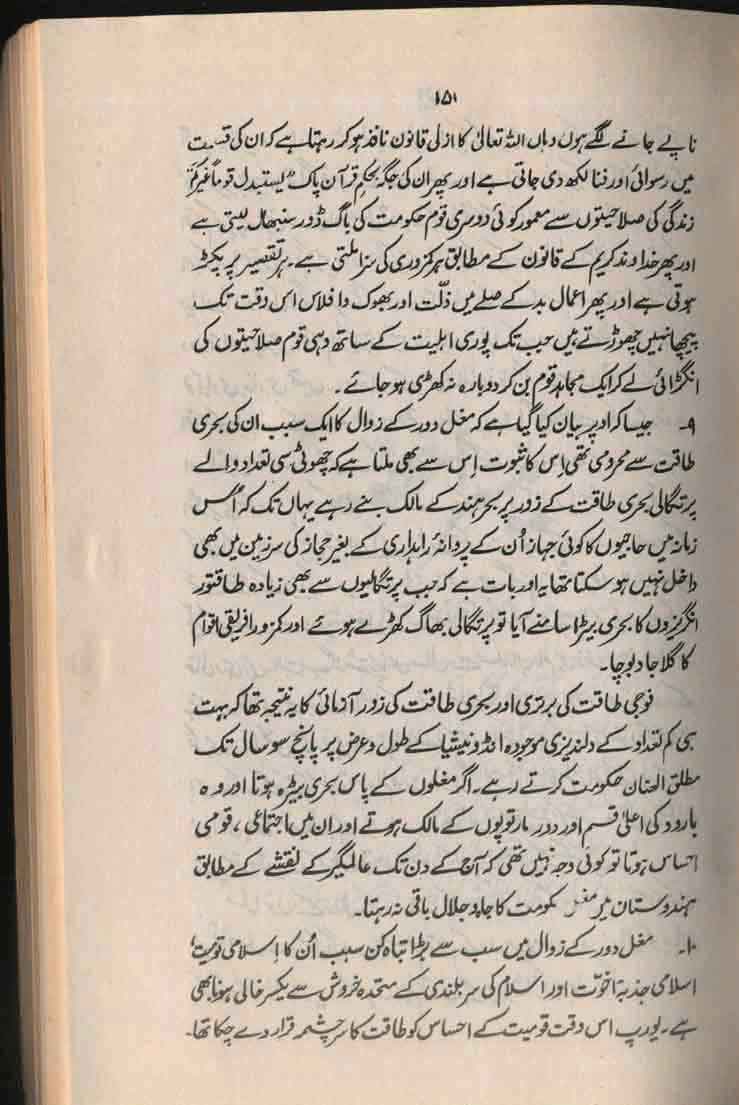 ۱۵۱
ناپے جانے لگے ہوں وہاں اللہ تعالیٰ کا ازلی قانون نافذ ہو کر رہتا ہے کہ ان کی قسمت
میں رسوائی اور فنا لکھ دی جاتی ہے اور پھر ان کی جگہ بحکمِ قرآن پاک "یستبدل قوماً غیرکم"
زندگی کی صلاحیتوں سے معمور کوئی دوسری قوم حکومت کی باگ ڈور سنبھال لیتی ہے
اور پھر خداوند کریم کے قانون کے مطابق ہر کمزوری کی سزا ملتی ہے۔ ہر تقصیر پر پکڑ
ہوتی ہے اور پھر اعمال بد کے صلے میں ذلّت اور بھوک و افلاس اس وقت تک
پیچھا نہیں چھوڑتے ہیں جب تک پوری اہلیت کے ساتھ وہی قوم صلاحیتوں کی
انگڑائی لے کر ایک مجاہد قوم بن کر دوبارہ نہ کھڑی ہو جائے۔
۹۔ جیسا کہ اوپر بیان کیا گیا ہے کہ مغل دور کے زوال کا ایک سبب ان کی بحری
طاقت سے محرومی تھی اِس کا ثبوت اِس سے بھی ملتا ہے کہ چھوٹی سی تعداد والے
پرتگالی بحری طاقت کے زور پر بحر ہند کے مالک بنے رہے یہاں تک کہ اُس
زمانہ میں حاجیوں کا کوئی جہاز اُن کے پروانۂ راہداری کے بغیر حجاز کی سرزمین میں بھی
داخل نہیں ہو سکتا تھا یہ اور بات ہے کہ جب پرتگالیوں سے بھی زیادہ طاقتور
انگریزوں کا بحری بیڑا سامنے آیا تو پرتگالی بھاگ کھڑے ہوئے اور کمزور افریقی اقوام
کا گلا جا دبوچا۔
فوجی طاقت کی برتری اور بحری طاقت کی زور آزمائی کا یہ نتیجہ تھا کہ بہت
ہی کم تعداد کے ولندیزی موجودہ انڈونیشیا کے طول و عرض پر پانچ سو سال تک
مطلق العنان حکومت کرتے رہے۔ اگر مغلوں کے پاس بحری بیڑہ ہوتا اور وہ
بارود کی اعلیٰ قسم اور دور مار توپوں کے مالک ہوتے اور ان میں اجتماعی، قومی
احساس ہوتا تو کوئی وجہ نہیں تھی کہ آج کے دن تک عالمگیر کے نقشے کے مطابق
ہندوستان میں مغل حکومت کا جاہ و جلال باقی نہ رہتا۔
۱۰۔ مغل دور کے زوال میں سب سے بڑا تباہ کن سبب اُن کا اِسلامی قومیت،
اسلامی جذبۂ اخوّت اور اسلام کی سربلندی کے متحدہ خروش سے یکسر خالی ہونا بھی
ہے۔ یورپ اس وقت قومیت کے احساس کو طاقت کا سرچشمہ قرار دے چکا تھا۔